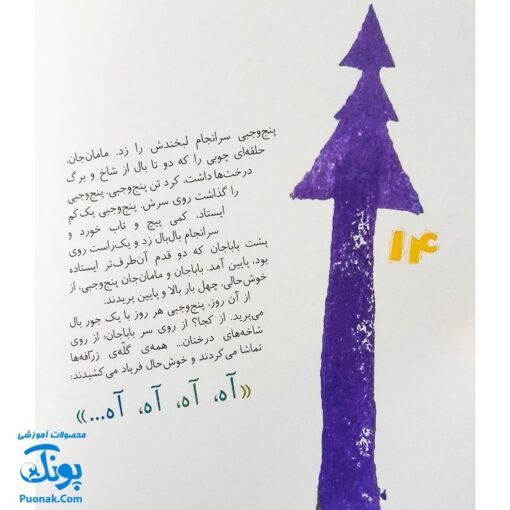 پنج‌وجبی سرانجام لبخندش را زد. مامان‌جان،
حلقه‌ای چوبی را که دو تا بال از شاخ و برگ
درخت‌ها داشت، کرد تن پنج‌وجبی. پنج‌وجبی
را گذاشت روی سرش. پنج‌وجبی یک‌کم
ایستاد، کمی پیچ و تاب خورد و
سرانجام بال‌بال زد و یک‌راست روی
پشت باباجان که دو قدم آن‌طرف‌تر ایستاده
بود، پایین آمد. باباجان و مامان‌جان پنج‌وجبی، از
خوش‌حالی، چهل بار بالا و پایین پریدند.
از آن روز، پنج‌وجبی هر روز با یک جور بال
می‌پرید. از کجا؟ از روی سر باباجان؛ از روی
شاخه‌های درختان... همه‌ی گله‌ی زرّافه‌ها
تماشا می‌کردند و خوش‌حال فریاد می‌کشیدند:
«آه، آه، آه، آه...»
۱۴
محصولات آموزشی
پونک
Puonak.Com